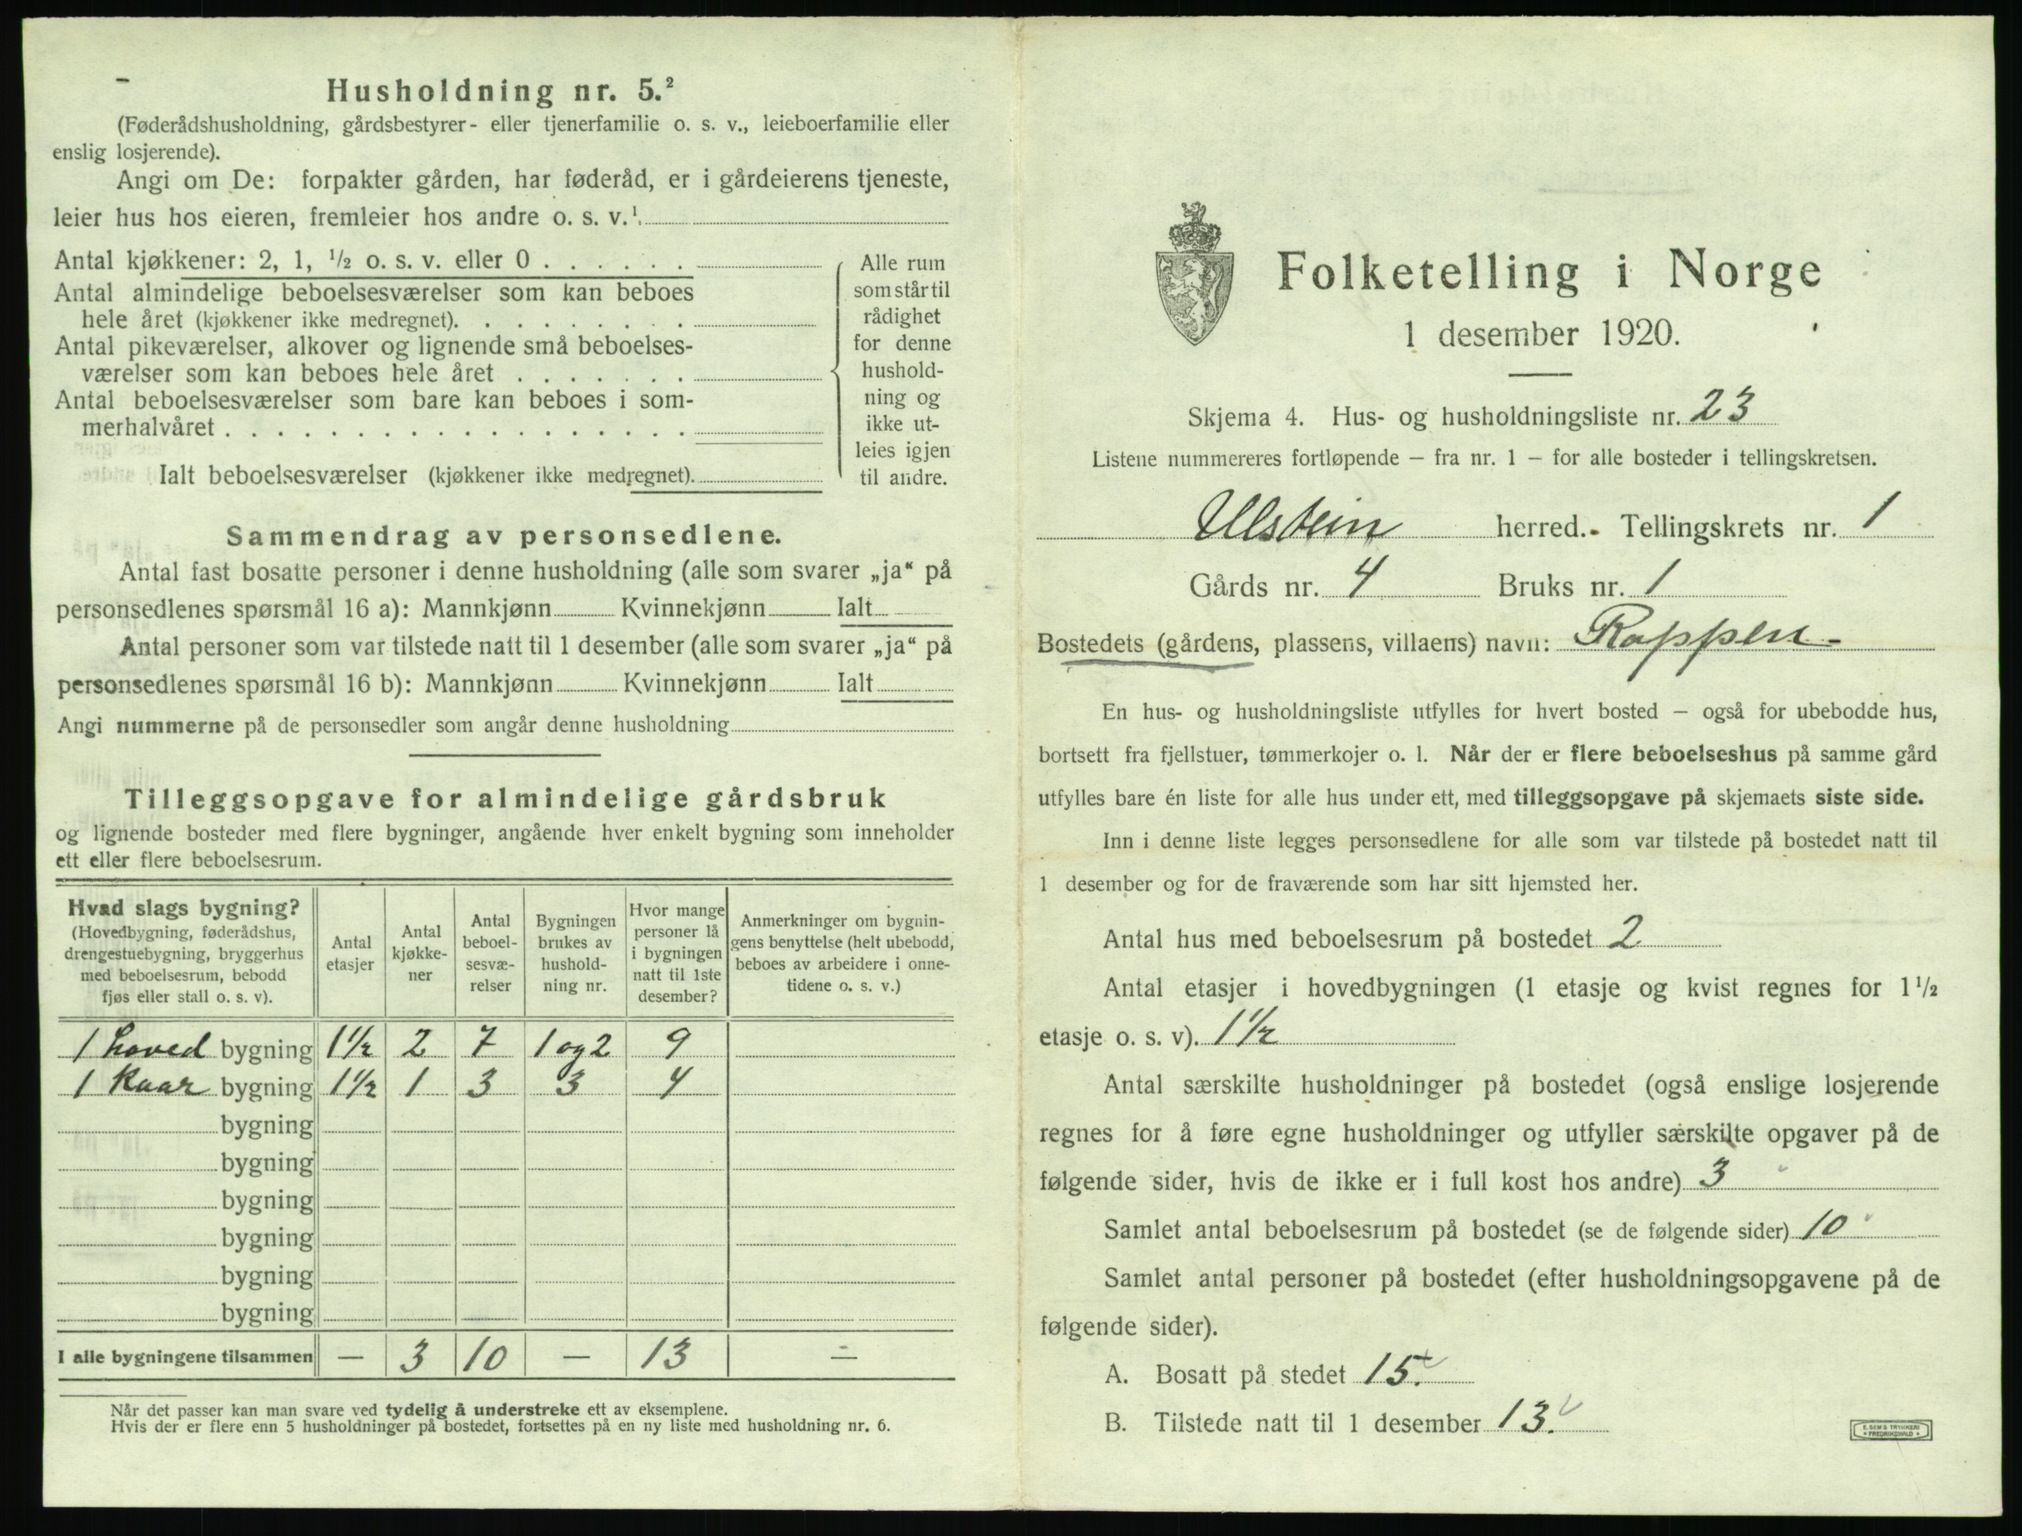 Husholdning nr. 5.²
(Føderådshusholdning, gårdsbestyrer- eller tjenerfamilie o. s. v., leieboerfamilie eller
enslig losjerende).
Angi om De: forpakter gården, har føderåd, er i gårdeierens tjeneste,
leier hus hos eieren, fremleier hos andre o. s. v.¹
Antal kjøkkener: 2, 1, ½ o. s. v. eller 0 . . . . . .
Antal almindelige beboelsesværelser som kan beboes
hele året (kjøkkener ikke medregnet). . . . . . . . .
Antal pikeværelser, alkover og lignende små beboelses-
værelser som kan beboes hele året . . . . . . .
Antal beboelsesværelser som bare kan beboes i som-
merhalvåret . . . . . . . . . . . . . . . . . .
Ialt beboelsesværelser (kjøkkener ikke medregnet).
Alle rum
som står til
rådighet
for denne
hushold-
ning og
ikke ut-
leies igjen
til andre.
Sammendrag av personsedlene.
Antal fast bosatte personer i denne husholdning (alle som svarer „ja“ på
personsedlenes spørsmål 16 a): Mannkjønn Kvinnekjønn Ialt
Antal personer som var tilstede natt til 1 desember (alle som svarer „ja“ på
personsedlenes spørsmål 16 b): Mannkjønn Kvinnekjønn Ialt
Angi nummerne på de personsedler som angår denne husholdning
Tilleggsopgave for almindelige gårdsbruk
og lignende bosteder med flere bygninger, angående hver enkelt bygning som inneholder
ett eller flere beboelsesrum.
Hvad slags bygning?
(Hovedbygning, føderådshus,
drengestuebygning, bryggerhus
med beboelsesrum, bebodd
fjøs eller stall o. s. v).
Antal
etasjer
Antal
kjøkke-
ner
Antal
beboel-
sesvæ-
relser
Bygningen
brukes av
hushold-
ning nr.
Hvor mange
personer lå
i bygningen
natt til 1ste
desember?
Anmerkninger om bygnin-
gens benyttelse (helt ubebodd,
beboes av arbeidere i onne-
tidene o. s. v.)
1 hoved bygning 1½ 2 7 1 og 2 9
1 kaar bygning 1½ 1 3 3 4
bygning
bygning
bygning
bygning
bygning
bygning
I alle bygningene tilsammen — 3 10 — 13 —
Når det passer kan man svare ved tydelig å understreke ett av eksemplene.
Hvis der er flere enn 5 husholdninger på bostedet, fortsettes på en ny liste med husholdning nr. 6.
Folketelling i Norge
1 desember 1920.
Skjema 4. Hus- og husholdningsliste nr. 23
Listene nummereres fortløpende – fra nr. 1 – for alle bosteder i tellingskretsen.
Ulstein herred. Tellingskrets nr. 1
Gårds nr. 4 Bruks nr. 1
Bostedets (gårdens, plassens, villaens) navn: Roppen
En hus- og husholdningsliste utfylles for hvert bosted – også for ubebodde hus,
bortsett fra fjellstuer, tømmerkojer o. l. Når der er flere beboelseshus på samme gård
utfylles bare én liste for alle hus under ett, med tilleggsopgave på skjemaets siste side.
Inn i denne liste legges personsedlene for alle som var tilstede på bostedet natt til
1 desember og for de fraværende som har sitt hjemsted her.
Antal hus med beboelsesrum på bostedet 2
Antal etasjer i hovedbygningen (1 etasje og kvist regnes for 1½
etasje o. s. v). 1½
Antal særskilte husholdninger på bostedet (også enslige losjerende
regnes for å føre egne husholdninger og utfyller særskilte opgaver på de
følgende sider, hvis de ikke er i full kost hos andre) 3
Samlet antal beboelsesrum på bostedet (se de følgende sider) 10
Samlet antal personer på bostedet (efter husholdningsopgavene på de
følgende sider).
A. Bosatt på stedet 15.
B. Tilstede natt til 1 desember 13.
E. SEM'S TRYKKERI
FREDRIKSHALD